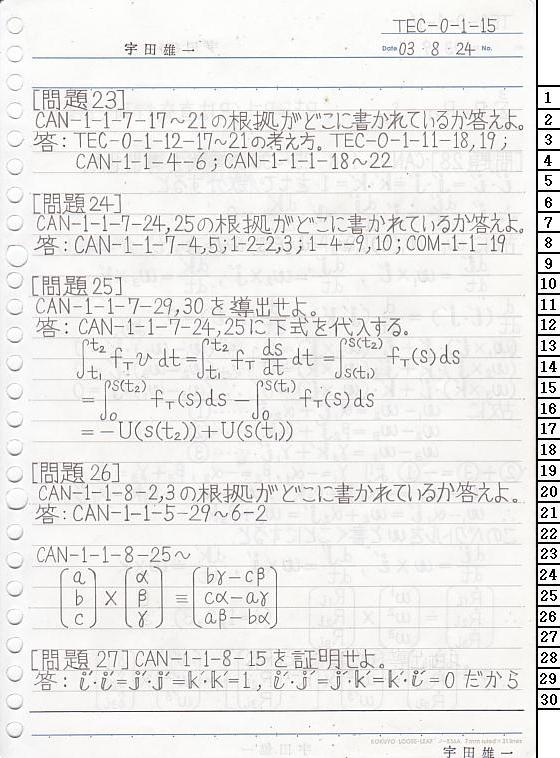 TEC-0-1-15
宇田雄一
Date 03・8・24 No.
[問題23]
CAN-1-1-7-17～21の根拠がどこに書かれているか答えよ。
答：TEC-0-1-12-17～21の考え方。TEC-0-1-11-18,19；
CAN-1-1-4-6；CAN-1-1-1-18～22
[問題24]
CAN-1-1-7-24,25の根拠がどこに書かれているか答えよ。
答：CAN-1-1-7-4,5；1-2-2,3；1-4-9,10；COM-1-1-19
[問題25]
CAN-1-1-7-29,30を導出せよ。
答：CAN-1-1-7-24,25に下式を代入する。
∫_{t₁}^{t₂} f_T v dt = ∫_{t₁}^{t₂} f_T ds/dt dt = ∫_{s(t₁)}^{s(t₂)} f_T(s)ds
= ∫_0^{s(t₂)} f_T(s)ds - ∫_0^{s(t₁)} f_T(s)ds
= -U(s(t₂)) + U(s(t₁))
[問題26]
CAN-1-1-8-2,3の根拠がどこに書かれているか答えよ。
答：CAN-1-1-5-29～6-2
CAN-1-1-8-25～
(a b c) × (α β γ) ≡ (bγ-cβ cα-aγ aβ-bα)
[問題27] CAN-1-1-8-15を証明せよ。
答：i′·i′=j′·j′=k′·k′=1, i′·j′=j′·k′=k′·i′=0だから
KOKUYO LOOSE-LEAF ノ-836A 7mm ruled×31 lines
宇田雄一
1
2
3
4
5
6
7
8
9
10
11
12
13
14
15
16
17
18
19
20
21
22
23
24
25
26
27
28
29
30